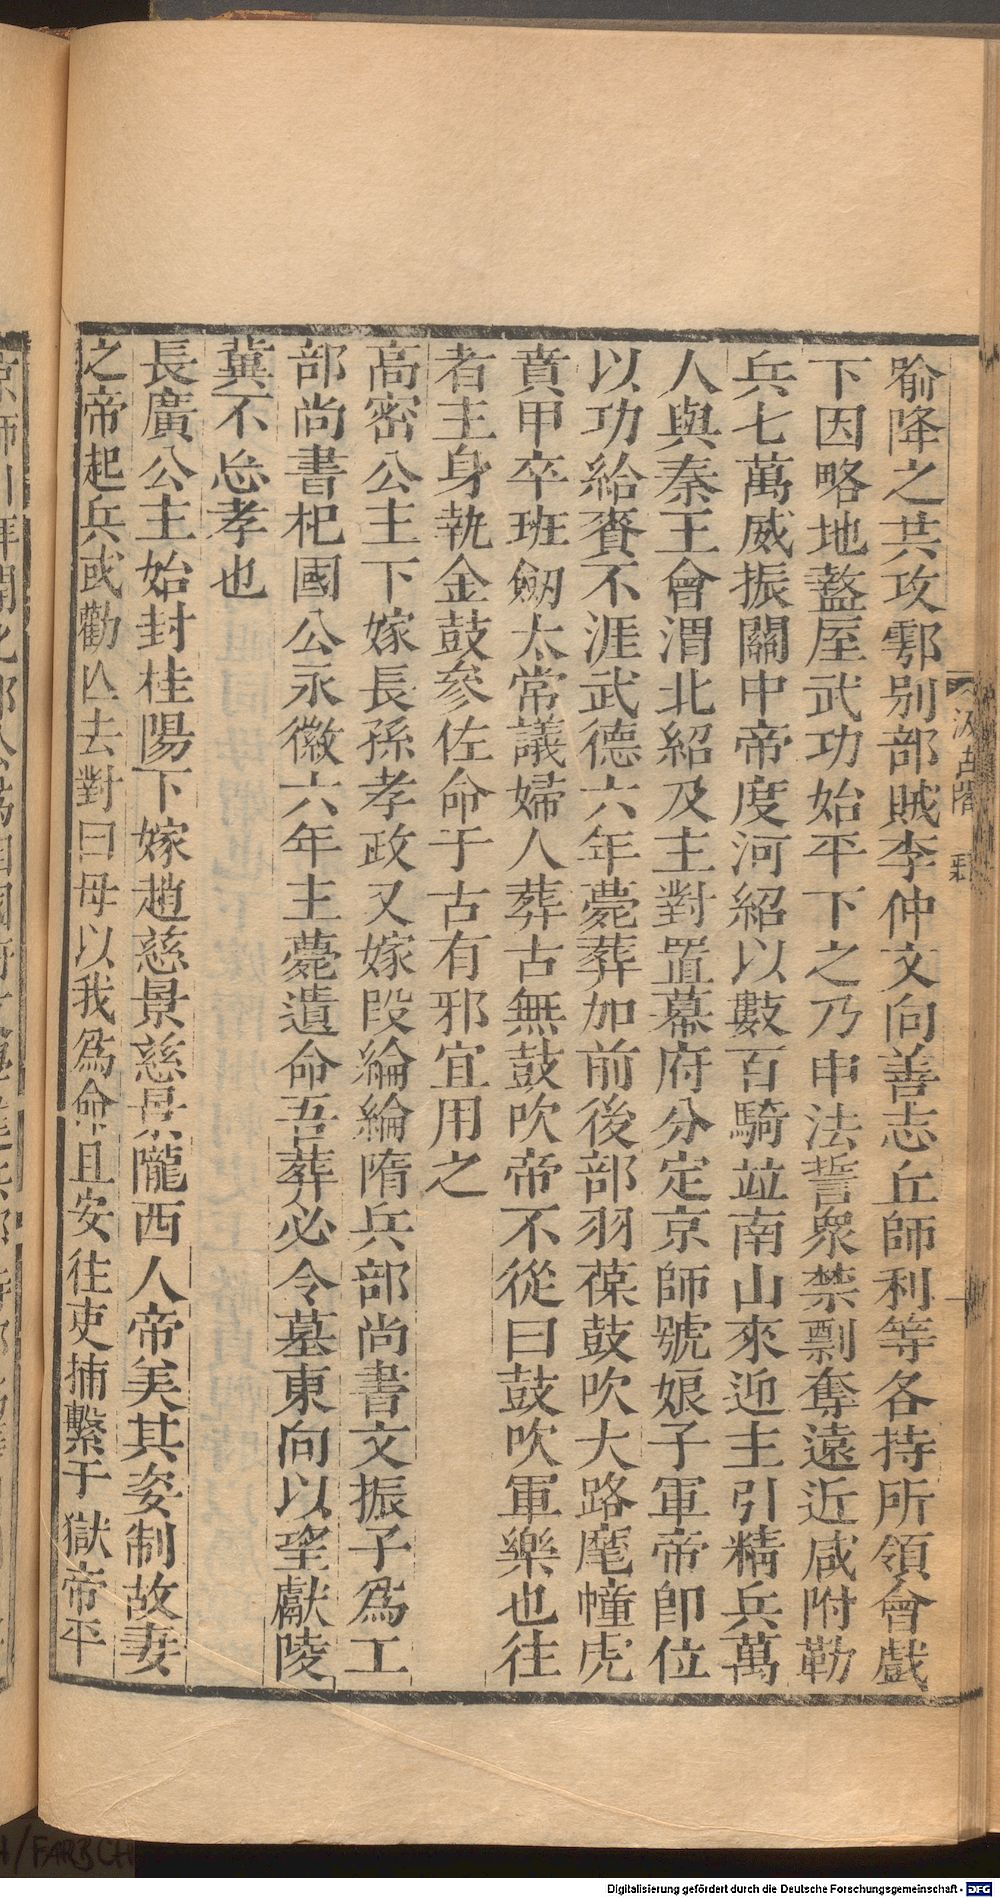 喻降之共攻鄠别部賊李仲文向善志丘師利等各持所領會戲
下因略地盩厔武功始平下之乃申法誓衆禁剽奪遠近咸附勒
兵七萬威振關中帝度河紹以數百騎竝南山來迎主引精兵萬
人與秦王會渭北紹及主對置幕府分定京師號娘子軍帝即位
以功給賚不涯武德六年薨葬加前後部羽葆鼓吹大路麾幢虎
賁甲卒班劒太常議婦人葬古無鼓吹帝不從曰鼓吹軍樂也往
者主身執金鼓參佐命于古有邪宜用之
高密公主下嫁長孫孝政又嫁段綸綸隋兵部尚書文振子爲工
部尚書杞國公永徽六年主薨遺命吾葬必令墓東向以望獻陵
冀不忘孝也
長廣公主始封桂陽下嫁趙慈景慈景隴西人帝美其姿制故妻
之帝起兵或勸亡去對曰母以我爲命且安往吏捕繫于獄帝平
汲古閣
Digitalisierung gefördert durch die Deutsche Forschungsgemeinschaft - DFG